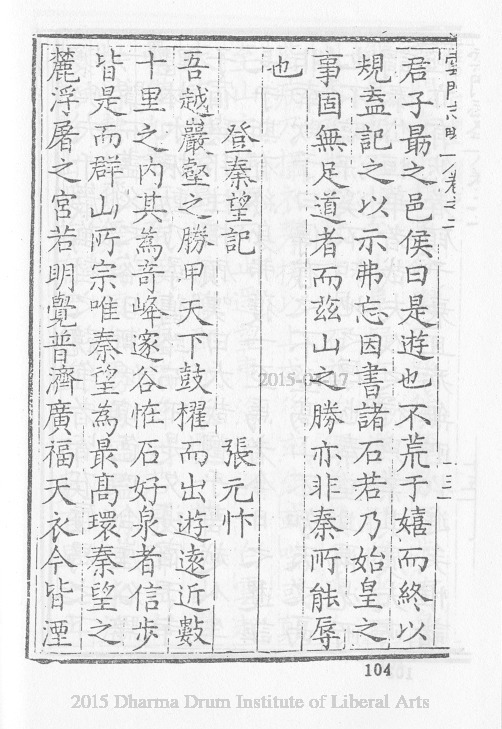 雲門志略 卷之二 十三
君子勗之邑侯曰是遊也不荒于嬉而終以
規盍記之以示弗忘因書諸石若乃始皇之
事固無足道者而茲山之勝亦非秦所能辱
也
登秦望記 張元忭
吾越巖壑之勝甲天下鼓櫂而出遊遠近數
十里之內其為竒峰邃谷恠石好泉者信步
皆是而群山所宗唯秦望為最高環秦望之
麓浮屠之宮若明覺普濟廣福天衣今皆湮
2015-04-17
104
2015 Dharma Drum Institute of Liberal Arts